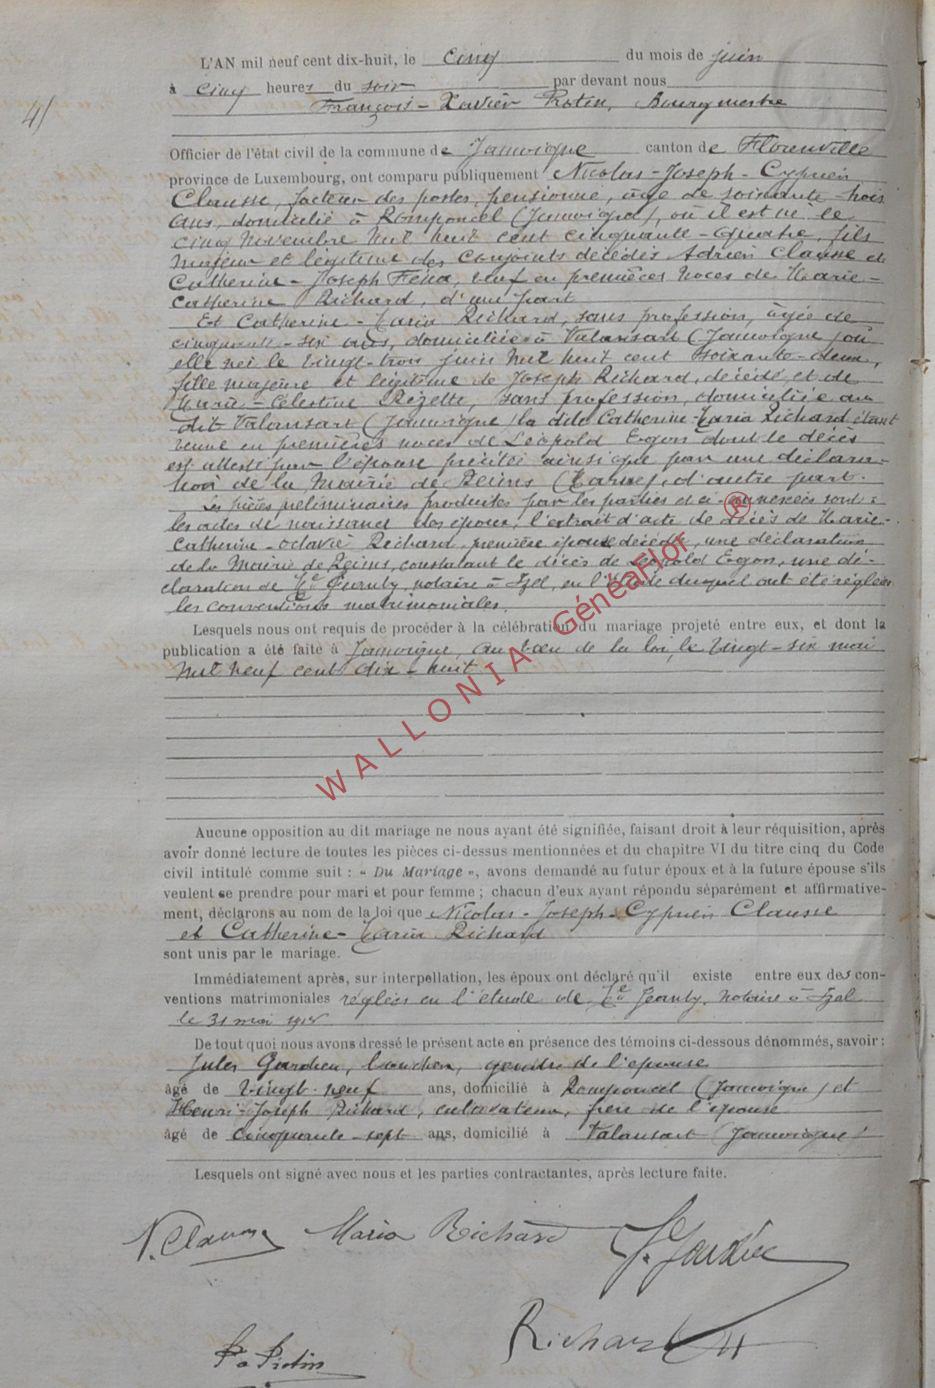 4/
L'AN mil neuf cent dix-huit, le cinq du mois de juin
à cinq heures du soir par devant nous
François-Xavier Protin, Bourgmestre
Officier de l'état civil de la commune de Jamoigne canton de Florenville
province de Luxembourg, ont comparu publiquement Nicolas-Joseph-Cyprien
Clausse, facteur des postes, pensionné, âgé de soixante-trois
ans, domicilié à Romponcel (Jamoigne), où il est né le
cinq Novembre Mil huit cent cinquante-quatre, fils
majeur et légitime des conjoints décédés Adrien Clausse et
Catherine-Joseph, veuf en premières noces de Marie-
Catherine Richard, d'une part
Et Catherine-Maria Richard, sans profession, âgée de
cinquante-six ans, domiciliée à Valansart (Jamoigne) où
elle née le vingt-trois juin Mil huit cent soixante-deux,
fille majeure et légitime de Joseph Richard, décédé, et de
Marie-Célestine Rézette, sans profession, domiciliée au
dit Valansart (Jamoigne) la dite Catherine-Maria Richard étant
veuve en premières noces de Léopold Egon dont le décès
est attesté par l'épouse précitée ainsi que par une déclara-
tion de la Mairie de Reims (Marne), d'autre part.
Les pièces préliminaires produites par les parties et ci-annexées sont:
les actes de naissance des époux, l'extrait d'acte de décès de Marie-
Catherine-Octavie Richard, première épouse décédée, une déclaration
de la Mairie de Reims, constatant le décès de Léopold Egon, une dé-
claration de Me Jeanty, notaire à Izel, en l'étude duquel ont été réglées
les conventions matrimoniales.
Lesquels nous ont requis de procéder à la célébration du mariage projeté entre eux, et dont la
publication a été faite à Jamoigne, au vœu de la loi, le vingt-six mai
Mil neuf cent dix-huit
WALLONIA GénéaFlor ®
Aucune opposition au dit mariage ne nous ayant été signifiée, faisant droit à leur réquisition, après
avoir donné lecture de toutes les pièces ci-dessus mentionnées et du chapitre VI du titre cinq du Code
civil intitulé comme suit : « Du Mariage », avons demandé au futur époux et à la future épouse s'ils
veulent se prendre pour mari et pour femme ; chacun d'eux ayant répondu séparément et affirmative-
ment, déclarons au nom de la loi que Nicolas-Joseph-Cyprien Clausse
et Catherine-Maria Richard
sont unis par le mariage.
Immédiatement après, sur interpellation, les époux ont déclaré qu'il existe entre eux des con-
ventions matrimoniales réglées en l'étude de Me Jeanty, notaire à Izel
le 31 mai 1918
De tout quoi nous avons dressé le présent acte en présence des témoins ci-dessous dénommés, savoir :
Jules, gendre de l'épouse
âgé de vingt-neuf ans, domicilié à Romponcel (Jamoigne) et
Henri-Joseph Richard, cultivateur, frère de l'épouse
âgé de cinquante-sept ans, domicilié à Valansart (Jamoigne)
Lesquels ont signé avec nous et les parties contractantes, après lecture faite.
N. Clausse Maria Richard
Richard H
Protin